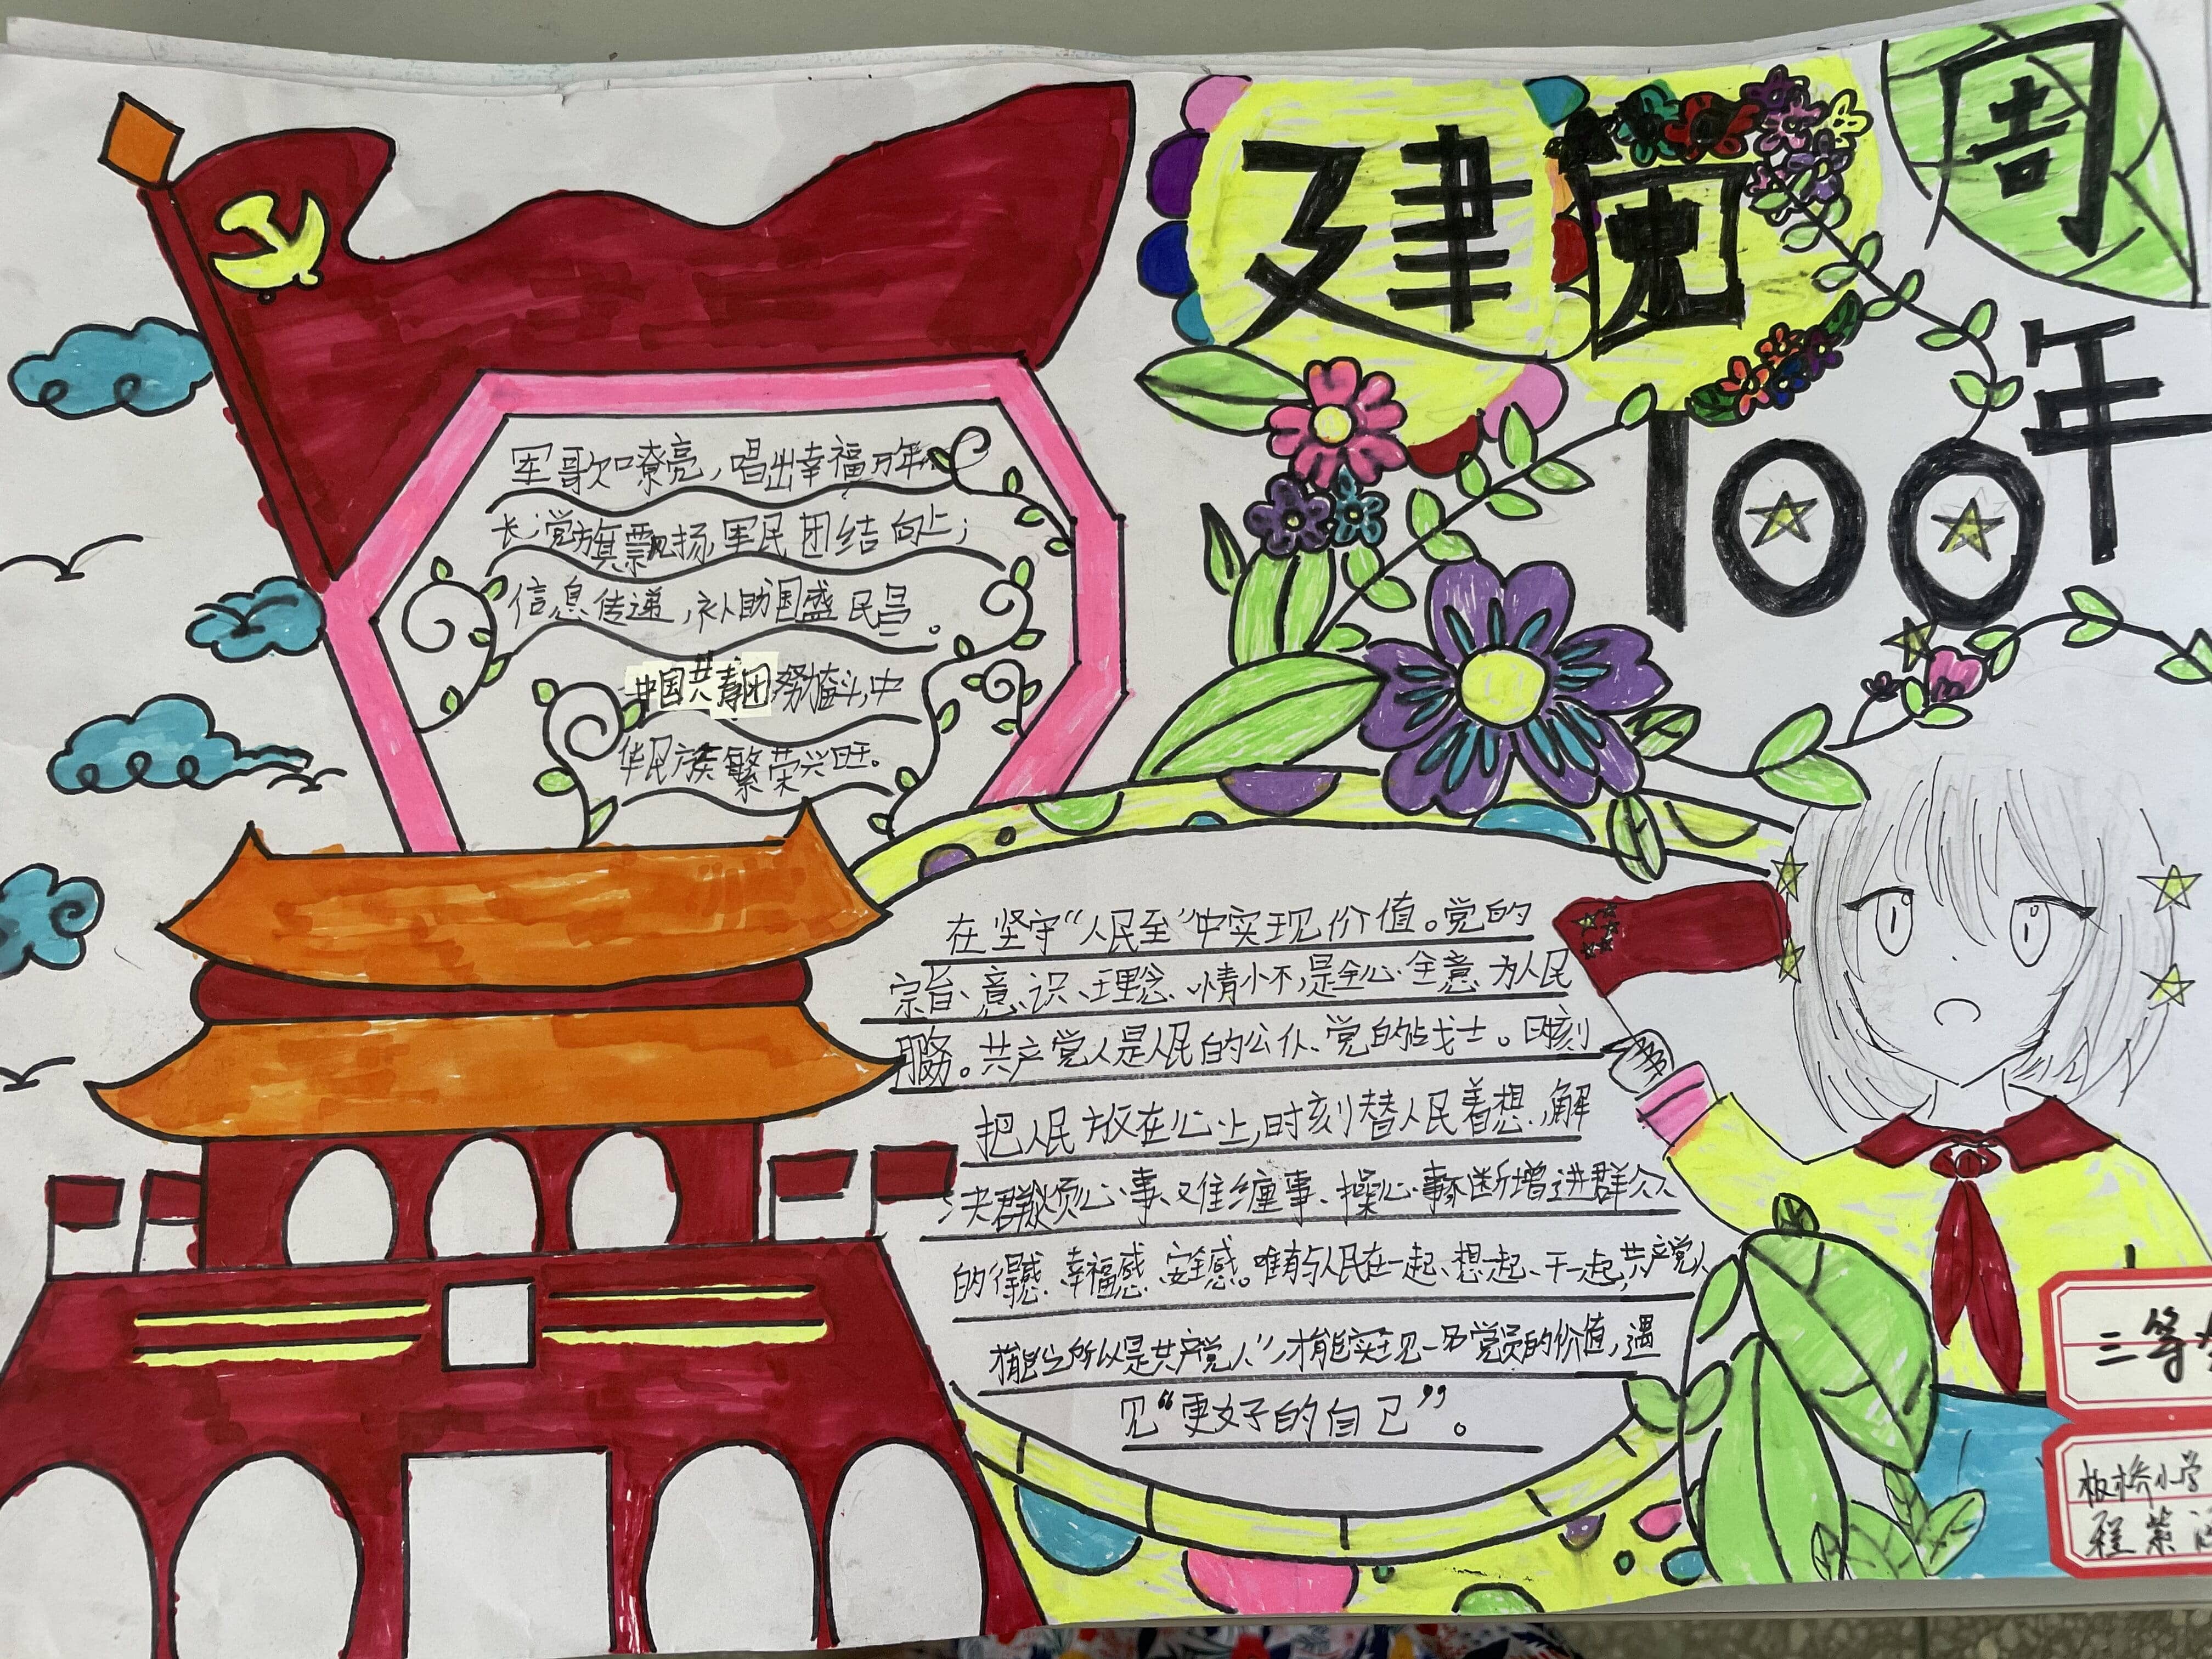 建团
周
年
100
军歌嘹亮，唱出幸福万年
长；党旗飘扬，军民团结向上；
信息传递，补助国盛民昌。
中国共青团努力奋斗，中
华民族繁荣兴旺。
在坚守“人民至”中实现价值。党的
宗旨、意识、理念、情怀，是全心全意为人民
服务。共产党人是人民的公仆、党的战士。时刻
把人民放在心上，时刻替人民着想，解
决群众烦心事、难缠事、操心事不断增进群众
的得感、幸福感、安全感。唯有与人民在一起、想一起、干一起，共产党人
才能之所以是共产党人”，才能实现一名党员的价值，遇
见“更好的自己”。
三等
板桥小学
程紫